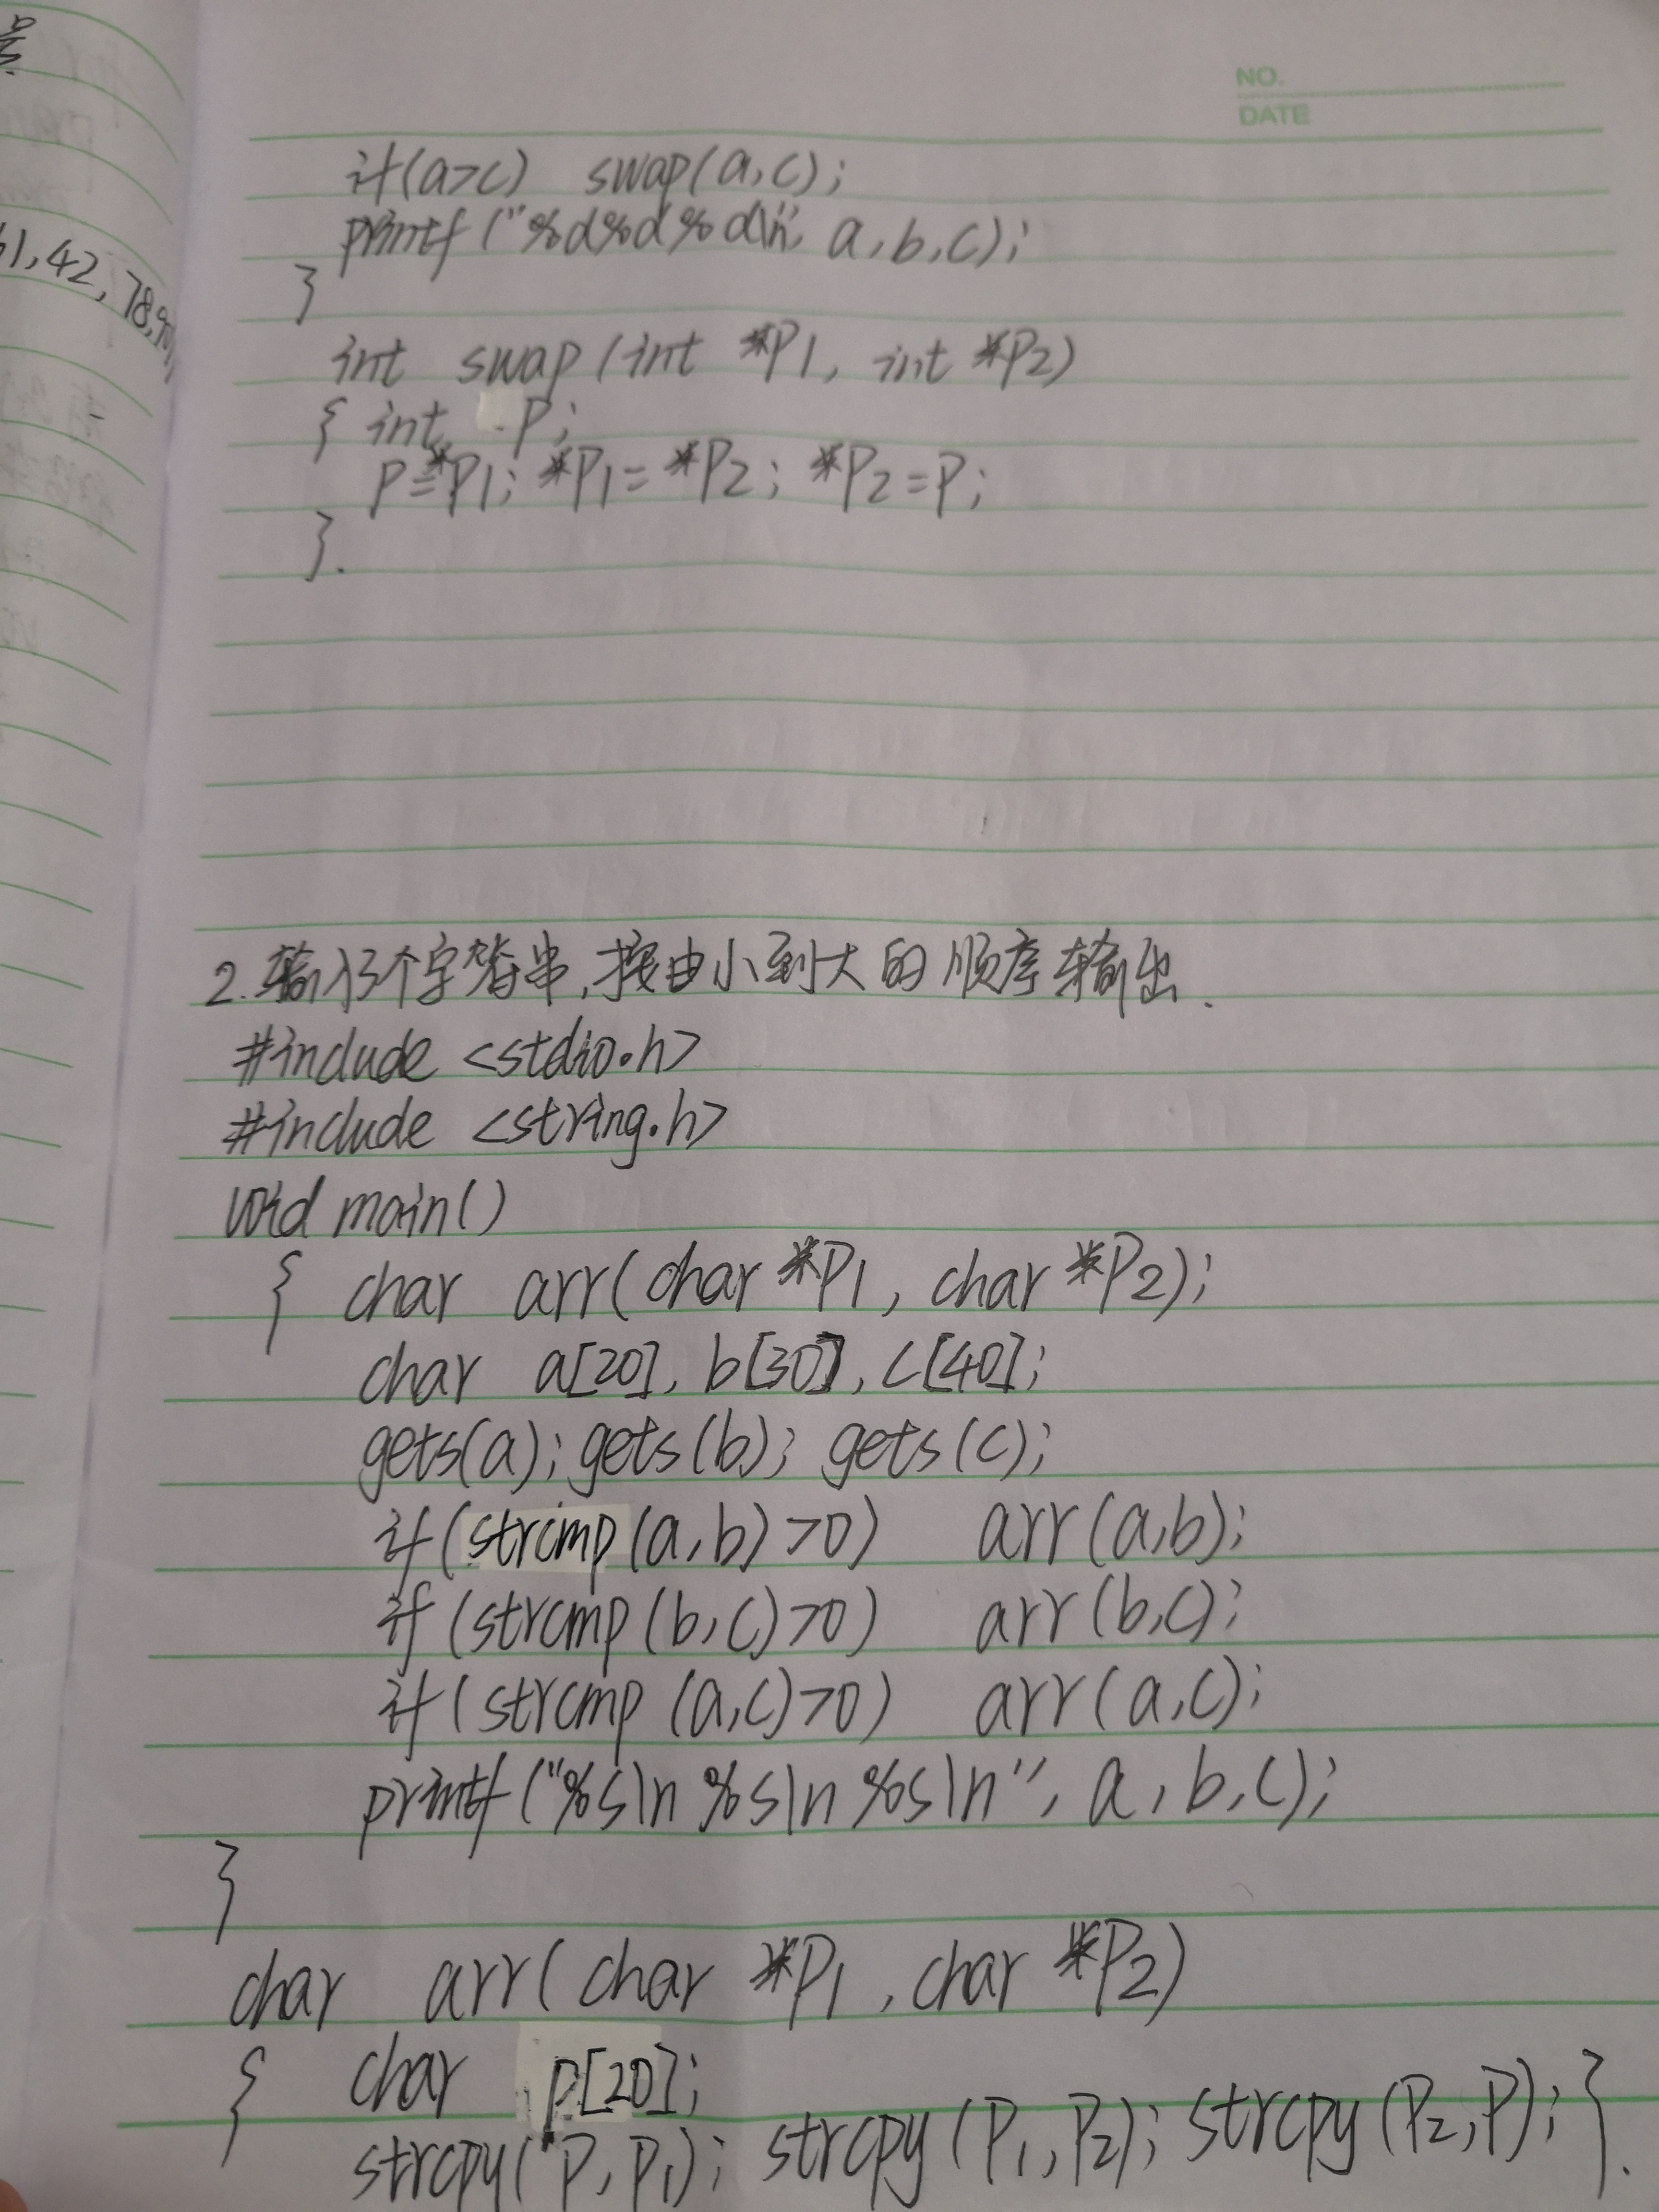 NO.
DATE
61,42,78,90
if(a>c) swap(a,c);
printf("%d%d%d\n", a,b,c);
}
int swap(int *P1, int *P2)
{ int P;
P=*P1; *P1=*P2; *P2=P;
}.
2.输入3个字符串,按由小到大的顺序输出.
#include <stdio.h>
#include <string.h>
void main()
{ char arr(char *P1, char *P2);
char a[20], b[30], c[40];
gets(a); gets(b); gets(c);
if(strcmp(a,b)>0) arr(a,b);
if(strcmp(b,c)>0) arr(b,c);
if(strcmp(a,c)>0) arr(a,c);
printf("%s\n %s\n %s\n", a,b,c);
}
char arr(char *P1, char *P2)
{ char p[20];
strcpy(P,P1); strcpy(P1,P2); strcpy(P2,P); }.